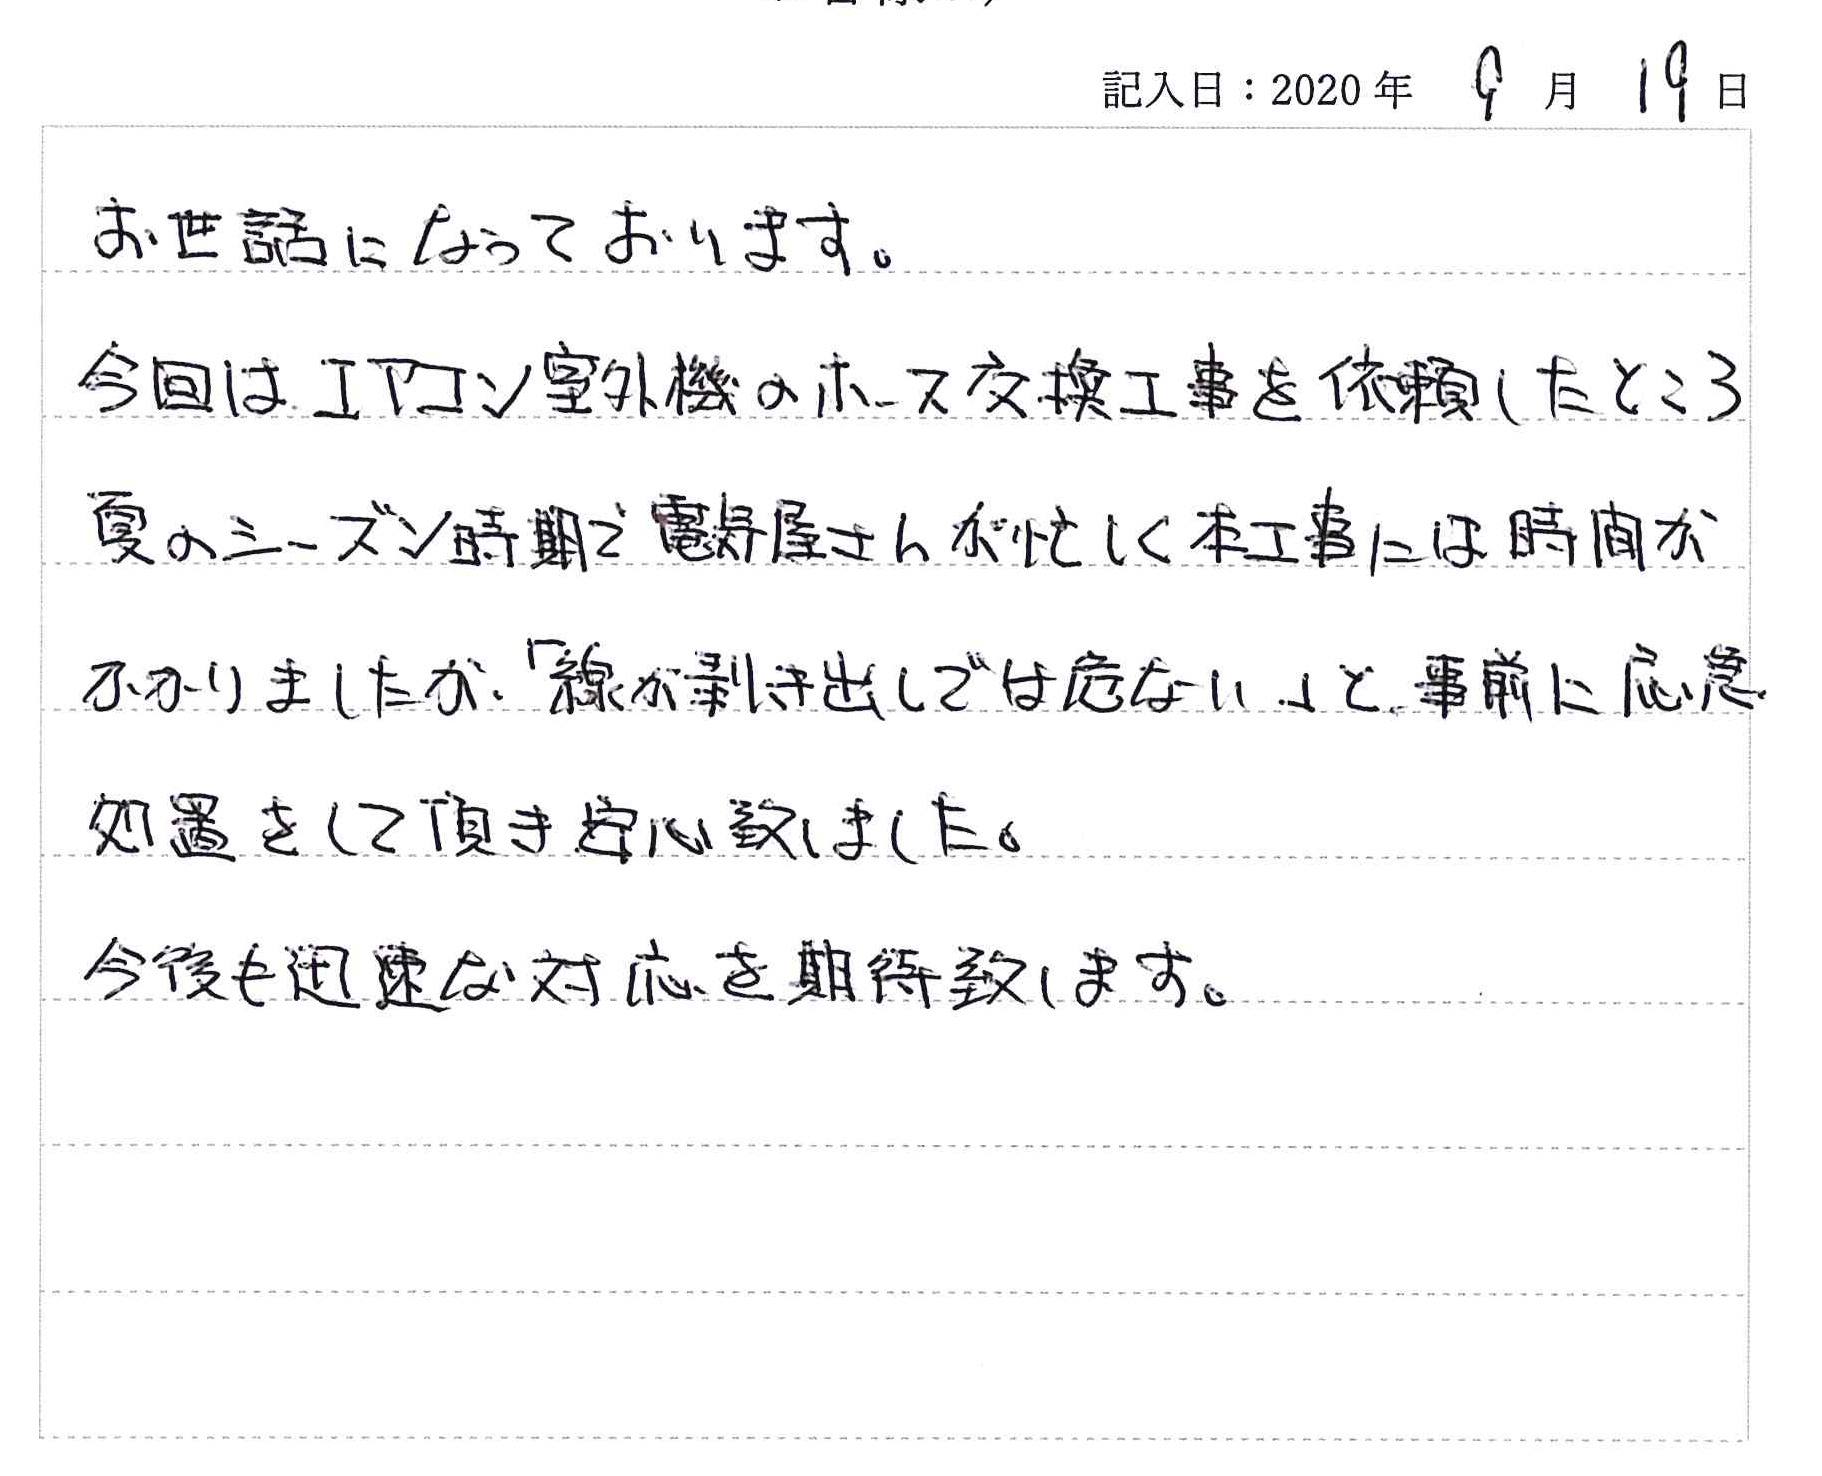 記入日：2020年 9月 19日
お世話になっております。
今回はエアコン室外機のホース交換工事を依頼したところ
夏のシーズン時期で電気屋さんが忙しく本工事には時間が
かかりましたが、「線が剥き出しでは危ない。」と、事前に応急
処置をして頂き安心致しました。
今後も迅速な対応を期待致します。